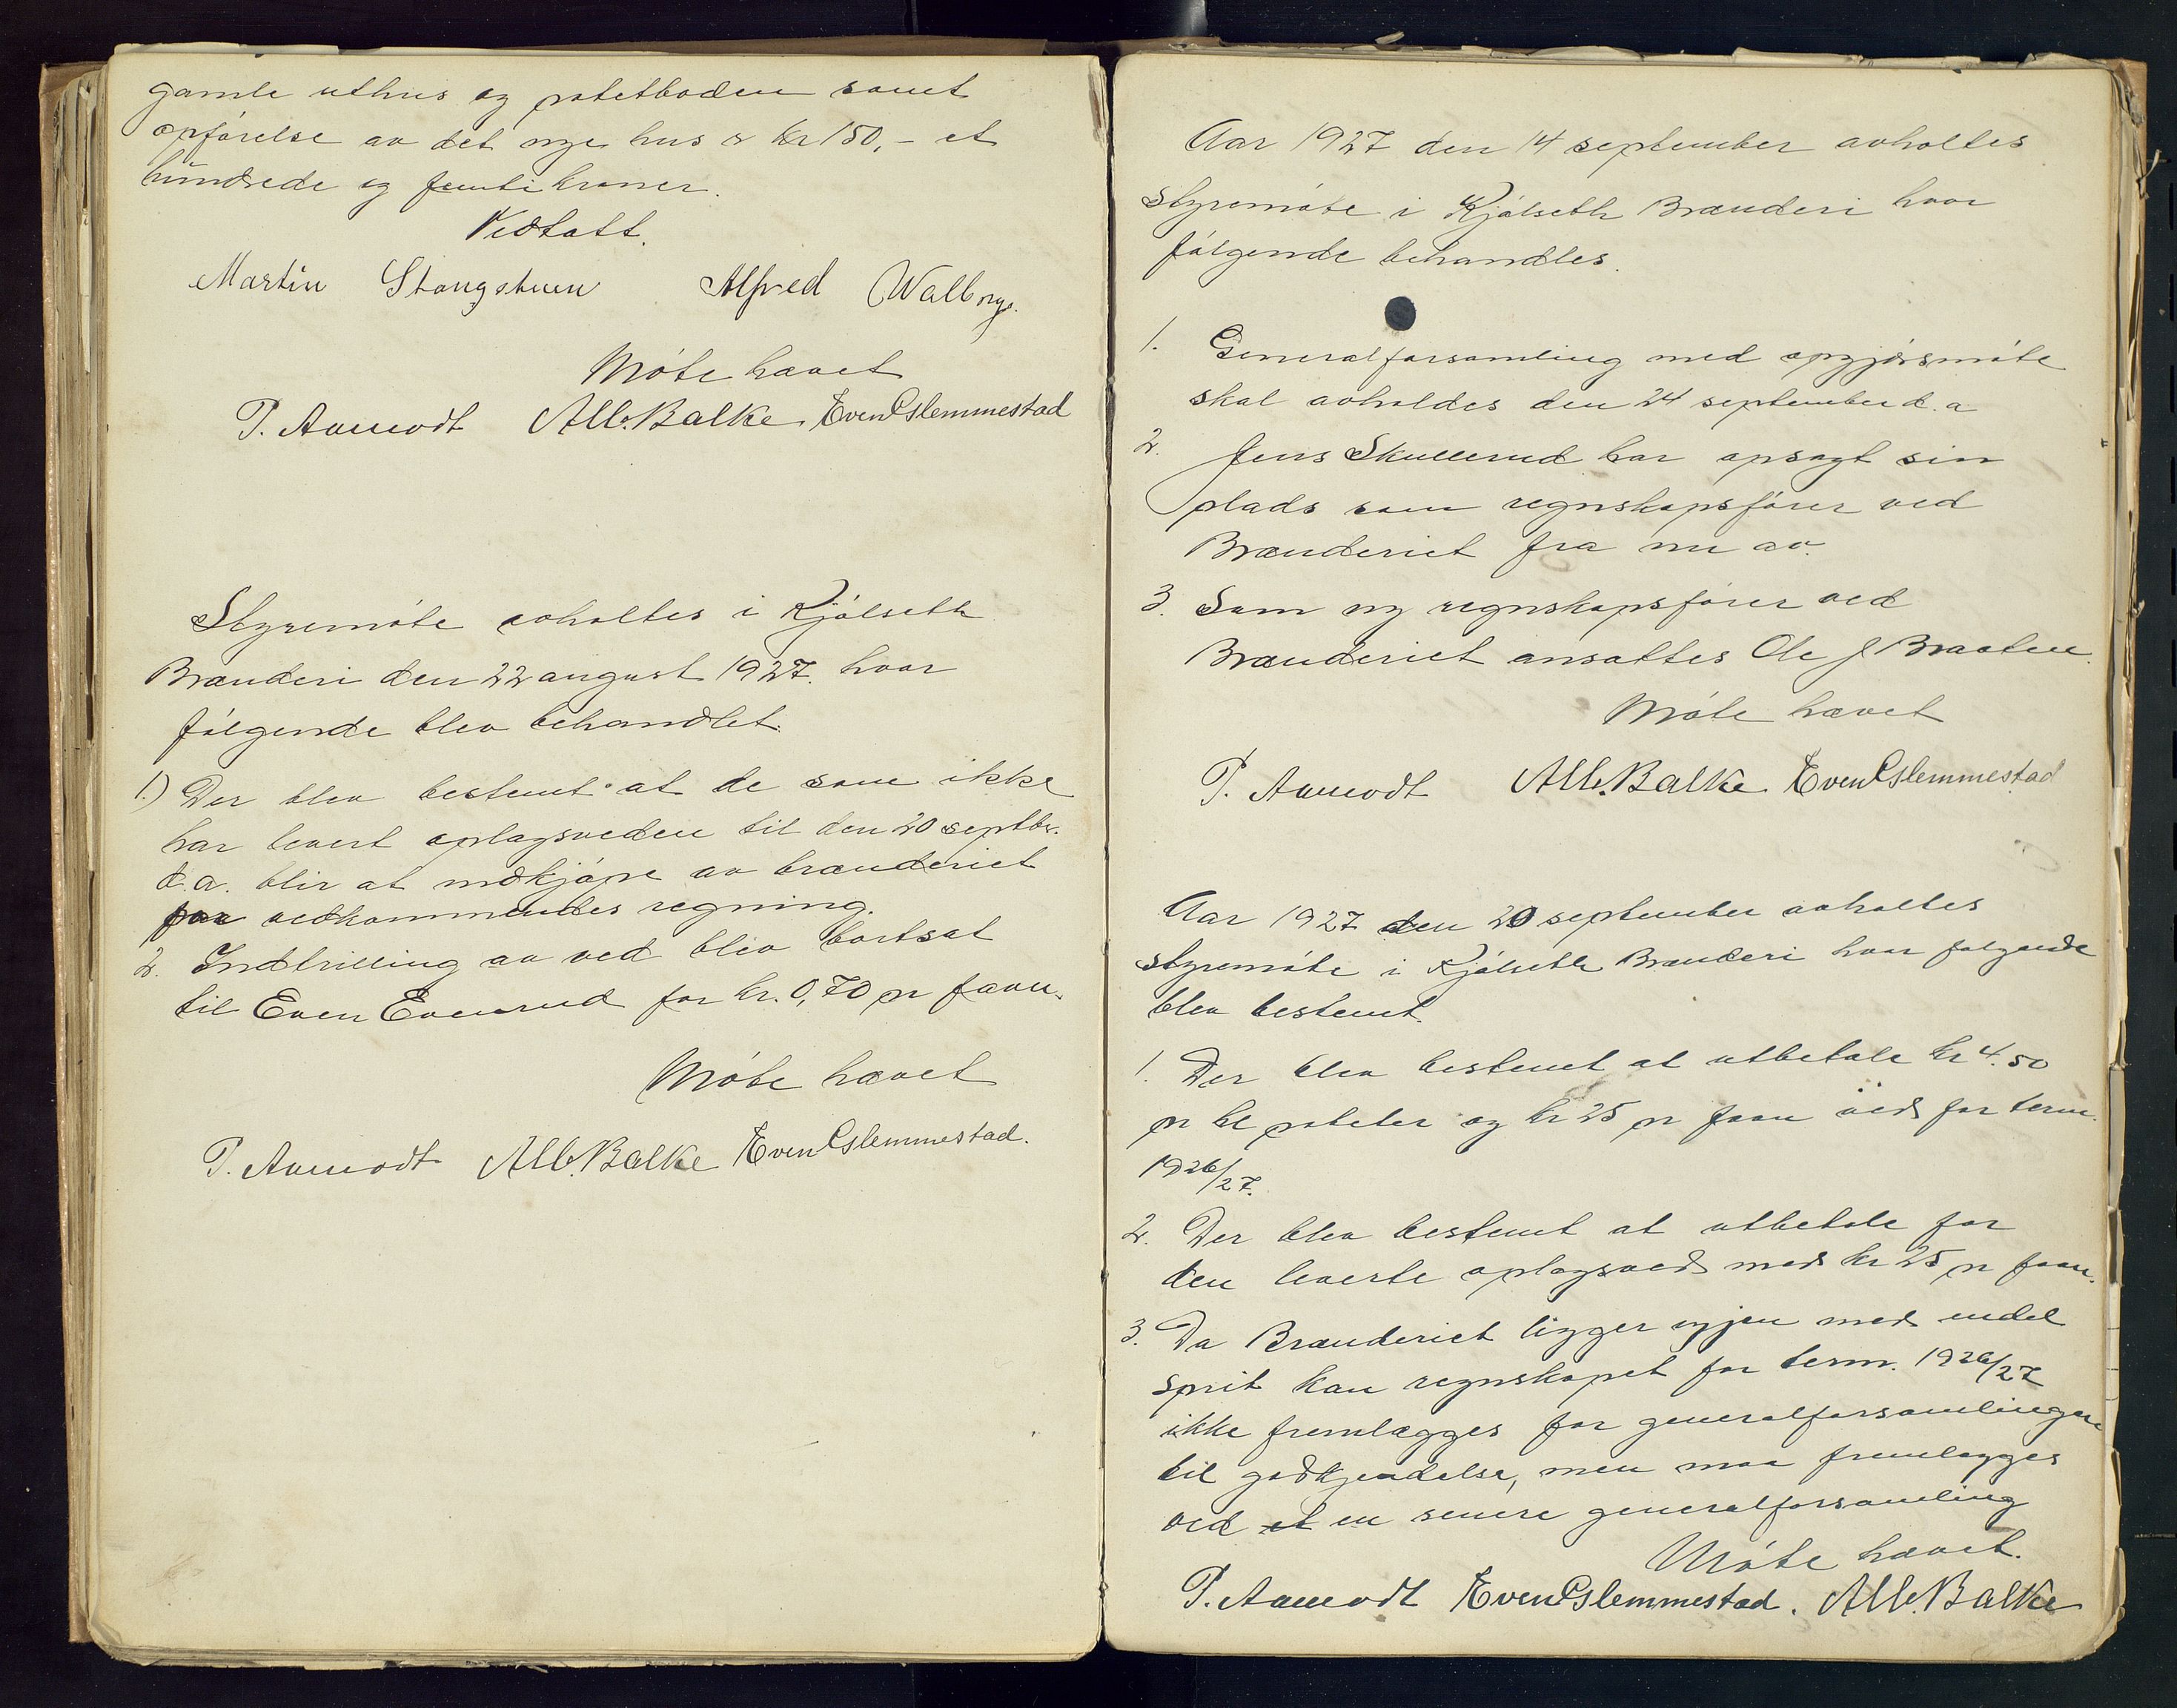 gamle uthus og potetboden samt
opførelse av det nye hus er kr 150,- et
hundrede og femti kroner.
Vedtatt.
Martin Stangstuen Alfred Walbye.
Møte hævet
P. Aamodt Alb. Balke Even Gslemmestad
Styremøte avholtes i Kjølseth
Brænderi den 22 august 1927. hvor
følgende blev behandlet.
1.) Der blev bestemt at de som ikke
har levert oplagsveden til den 20 septbr.
d.a. blir at indkjøpe av brænderiet
paa vedkommendes regning.
2. Indtrilling av ved blev bortsat
til Even Evenrud for kr. 0,70 pr favn.
Møte hævet
P. Aamodt Alb. Balke Even Gslemmestad.
Aar 1927 den 14 september avholtes
styremøte i Kjølseth Brænderi hvor
følgende behandles.
1. Generalforsamling med opgjørsmøte
skal avholdes den 24 september d.a
2. Jens Skullerud har opsagt sin
plads som regnskapsfører ved
Brænderiet fra nu av.
3. Som ny regnskapsfører ved
Brænderiet ansattes Ole J Braaten.
Møte hævet
P. Aamodt Alb. Balke Even Gslemmestad
Aar 1927 den 20 september avholtes
styremøte i Kjølseth Brænderi hvor følgende
blev bestemt.
1. Der blev bestemt at utbetale kr 4.50
pr hl poteter og kr 25 pr favn ved for term.
1926/27.
2. Der blev bestemt at utbetale for
den leverte oplagsved med kr 25 pr favn.
3. Da Brænderiet ligger igjen med endel
sprit kan regnskapet for term. 1926/27
ikke fremlægges for generalforsamlingen
til godkjendelse, men maa fremlægges
ved et en senere generalforsamling
Møte hævet.
P. Aamodt Even Gslemmestad. Alb. Balke